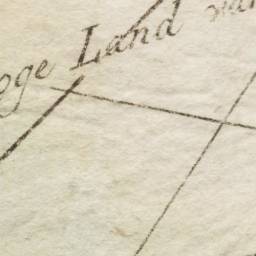 ege Land